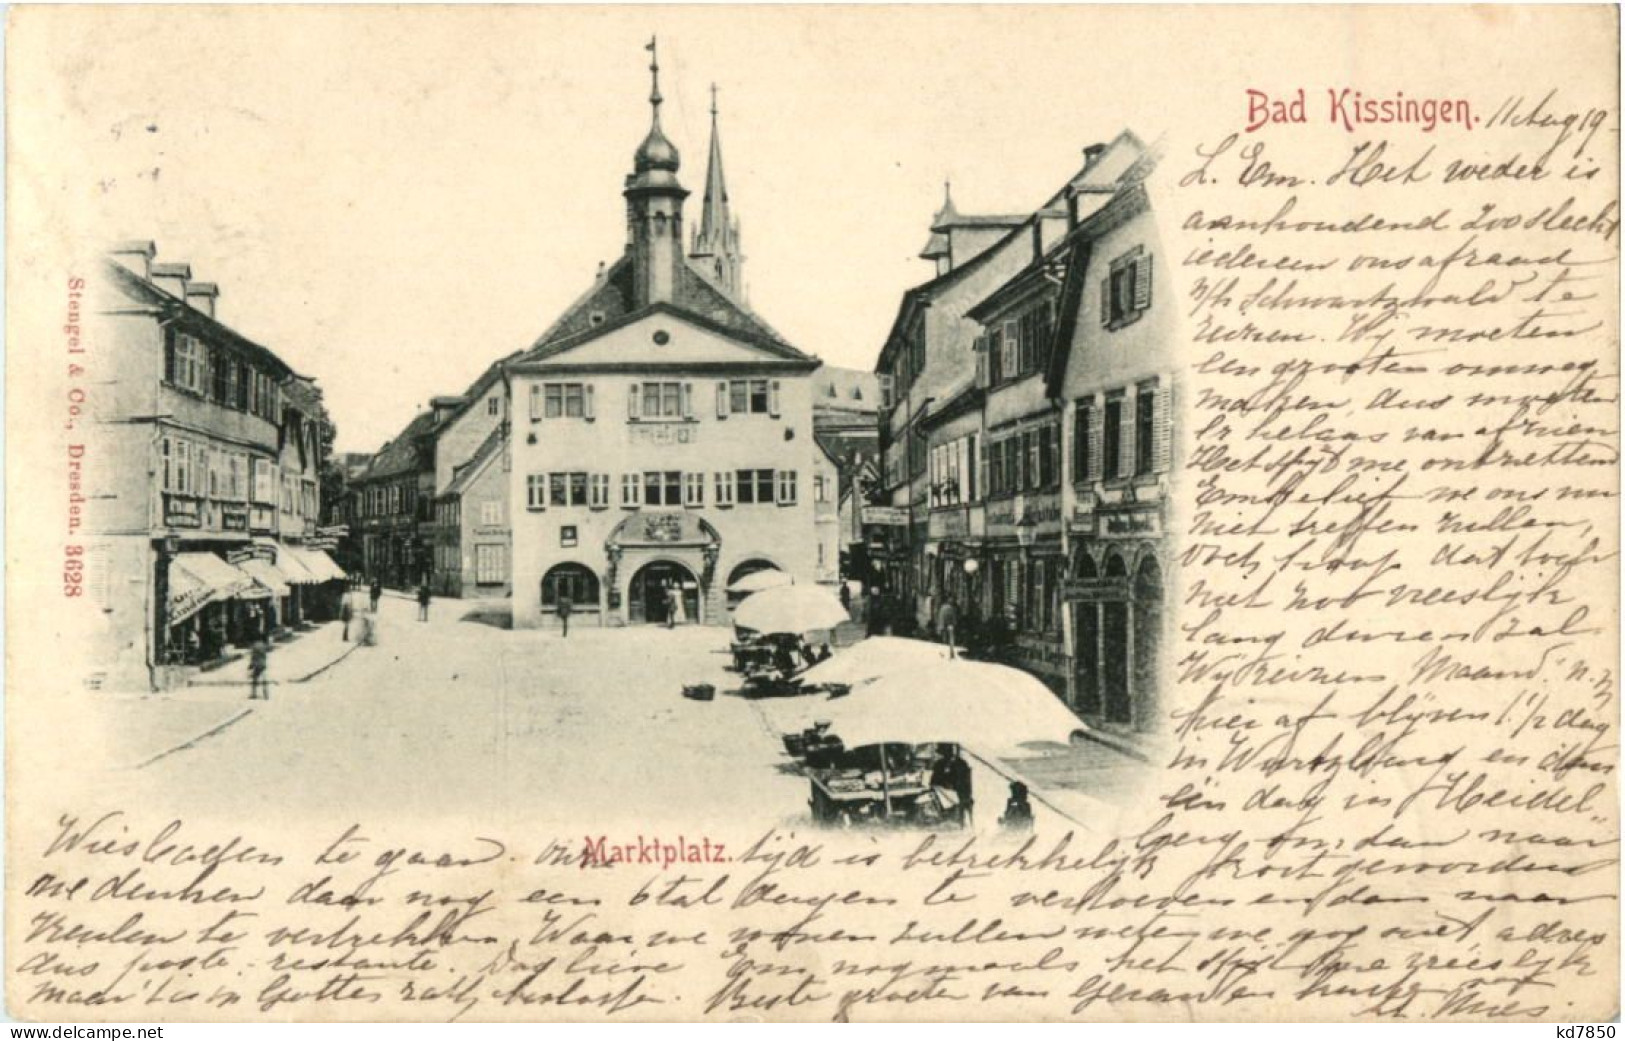 Bad Kissingen. 11 Aug 19
L. Em. Het weder is
aanhoudend zoo slecht
iedereen ons afraad
n/h Schwartzwald te
reizen. Wij moeten
een grooten omweg
maken, dus moeten
er helaas van afzien
Het spijt me ontzettend
Em lief we ons nu
niet treffen zullen,
doch hoop dat toch
niet zoo vreeslijk
lang duren zal.
Wij reizen Maand. n.m.
hier af blijven 1 1/2 dag
in Wurtzburg en dan
een dag in Heidel„
berg om dan naar
Wiesbaden te gaan. Onze tijd is betrekkelijk kort geworden
we denken daar nog een 6tal dagen te vertoeven en dan naar
Keulen te vertrekken. Waar we wonen zullen weten we nog niet adres
dus poste-restante. Dag lieve Em nogmaals het spijt me vreeslijk
maar 't is in Gottes rath. Beste groeten van
Marktplatz.
Stengel & Co., Dresden. 3628
kd7850